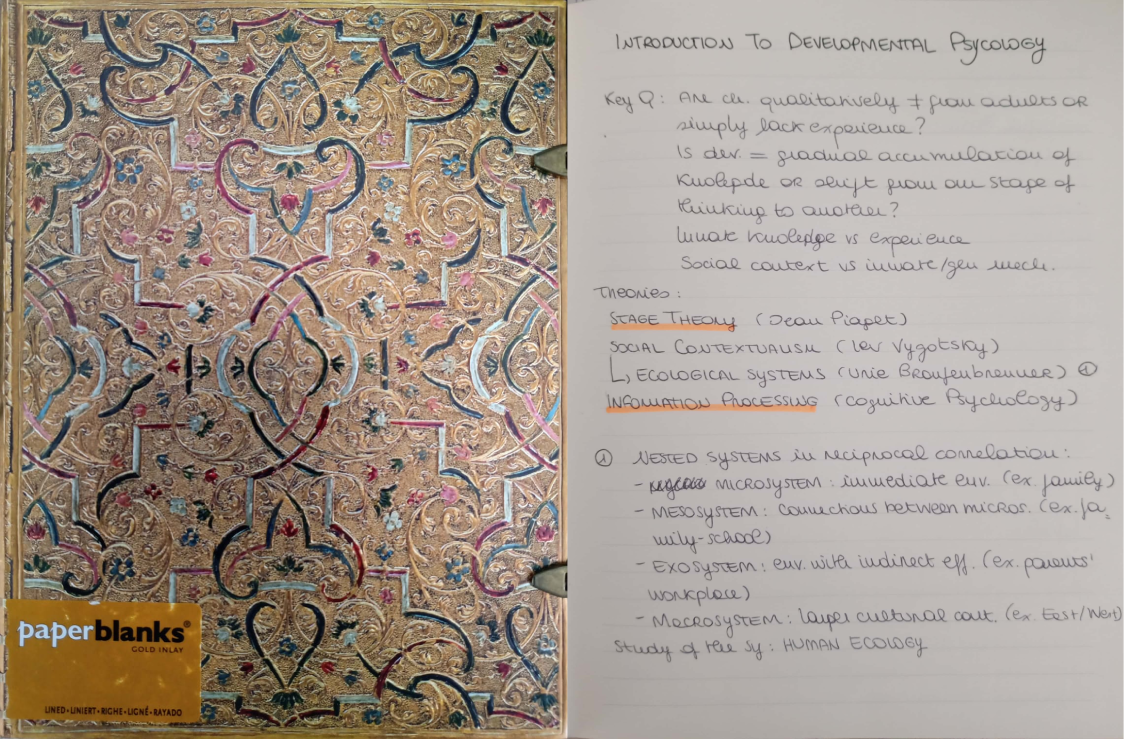 paperblanks®
GOLD INLAY
LINED•LINIERT•RIGHE•LIGNÉ•RAYADO
INTRODUCTION TO DEVELOPMENTAL PSYCOLOGY
Key Q: Are ch. qualitatively ≠ from adults OR
simply lack experience?
Is dev. = gradual accumulation of
knolegde OR shift from one stage of
thinking to another?
Innate knolegde vs experience
Social context vs innate/gen mech.
Theories:
STAGE THEORY (Jean Piaget)
SOCIAL CONTEXTUALISM (Lev Vygotsky)
↳ ECOLOGICAL SYSTEMS (Urie Bronfenbrenner) ①
INFORMATION PROCESSING (cognitive Psychology)
① NESTED SYSTEMS in reciprocal correlation:
- MICROSYSTEM: immediate env. (ex. family)
- MESOSYSTEM: connections between micros. (ex. fa-
mily-school)
- EXOSYSTEM: env. with indirect eff. (ex. parents'
workplace)
- MACROSYSTEM: larger cultural cont. (ex. East/West)
Study of the sy: HUMAN ECOLOGY